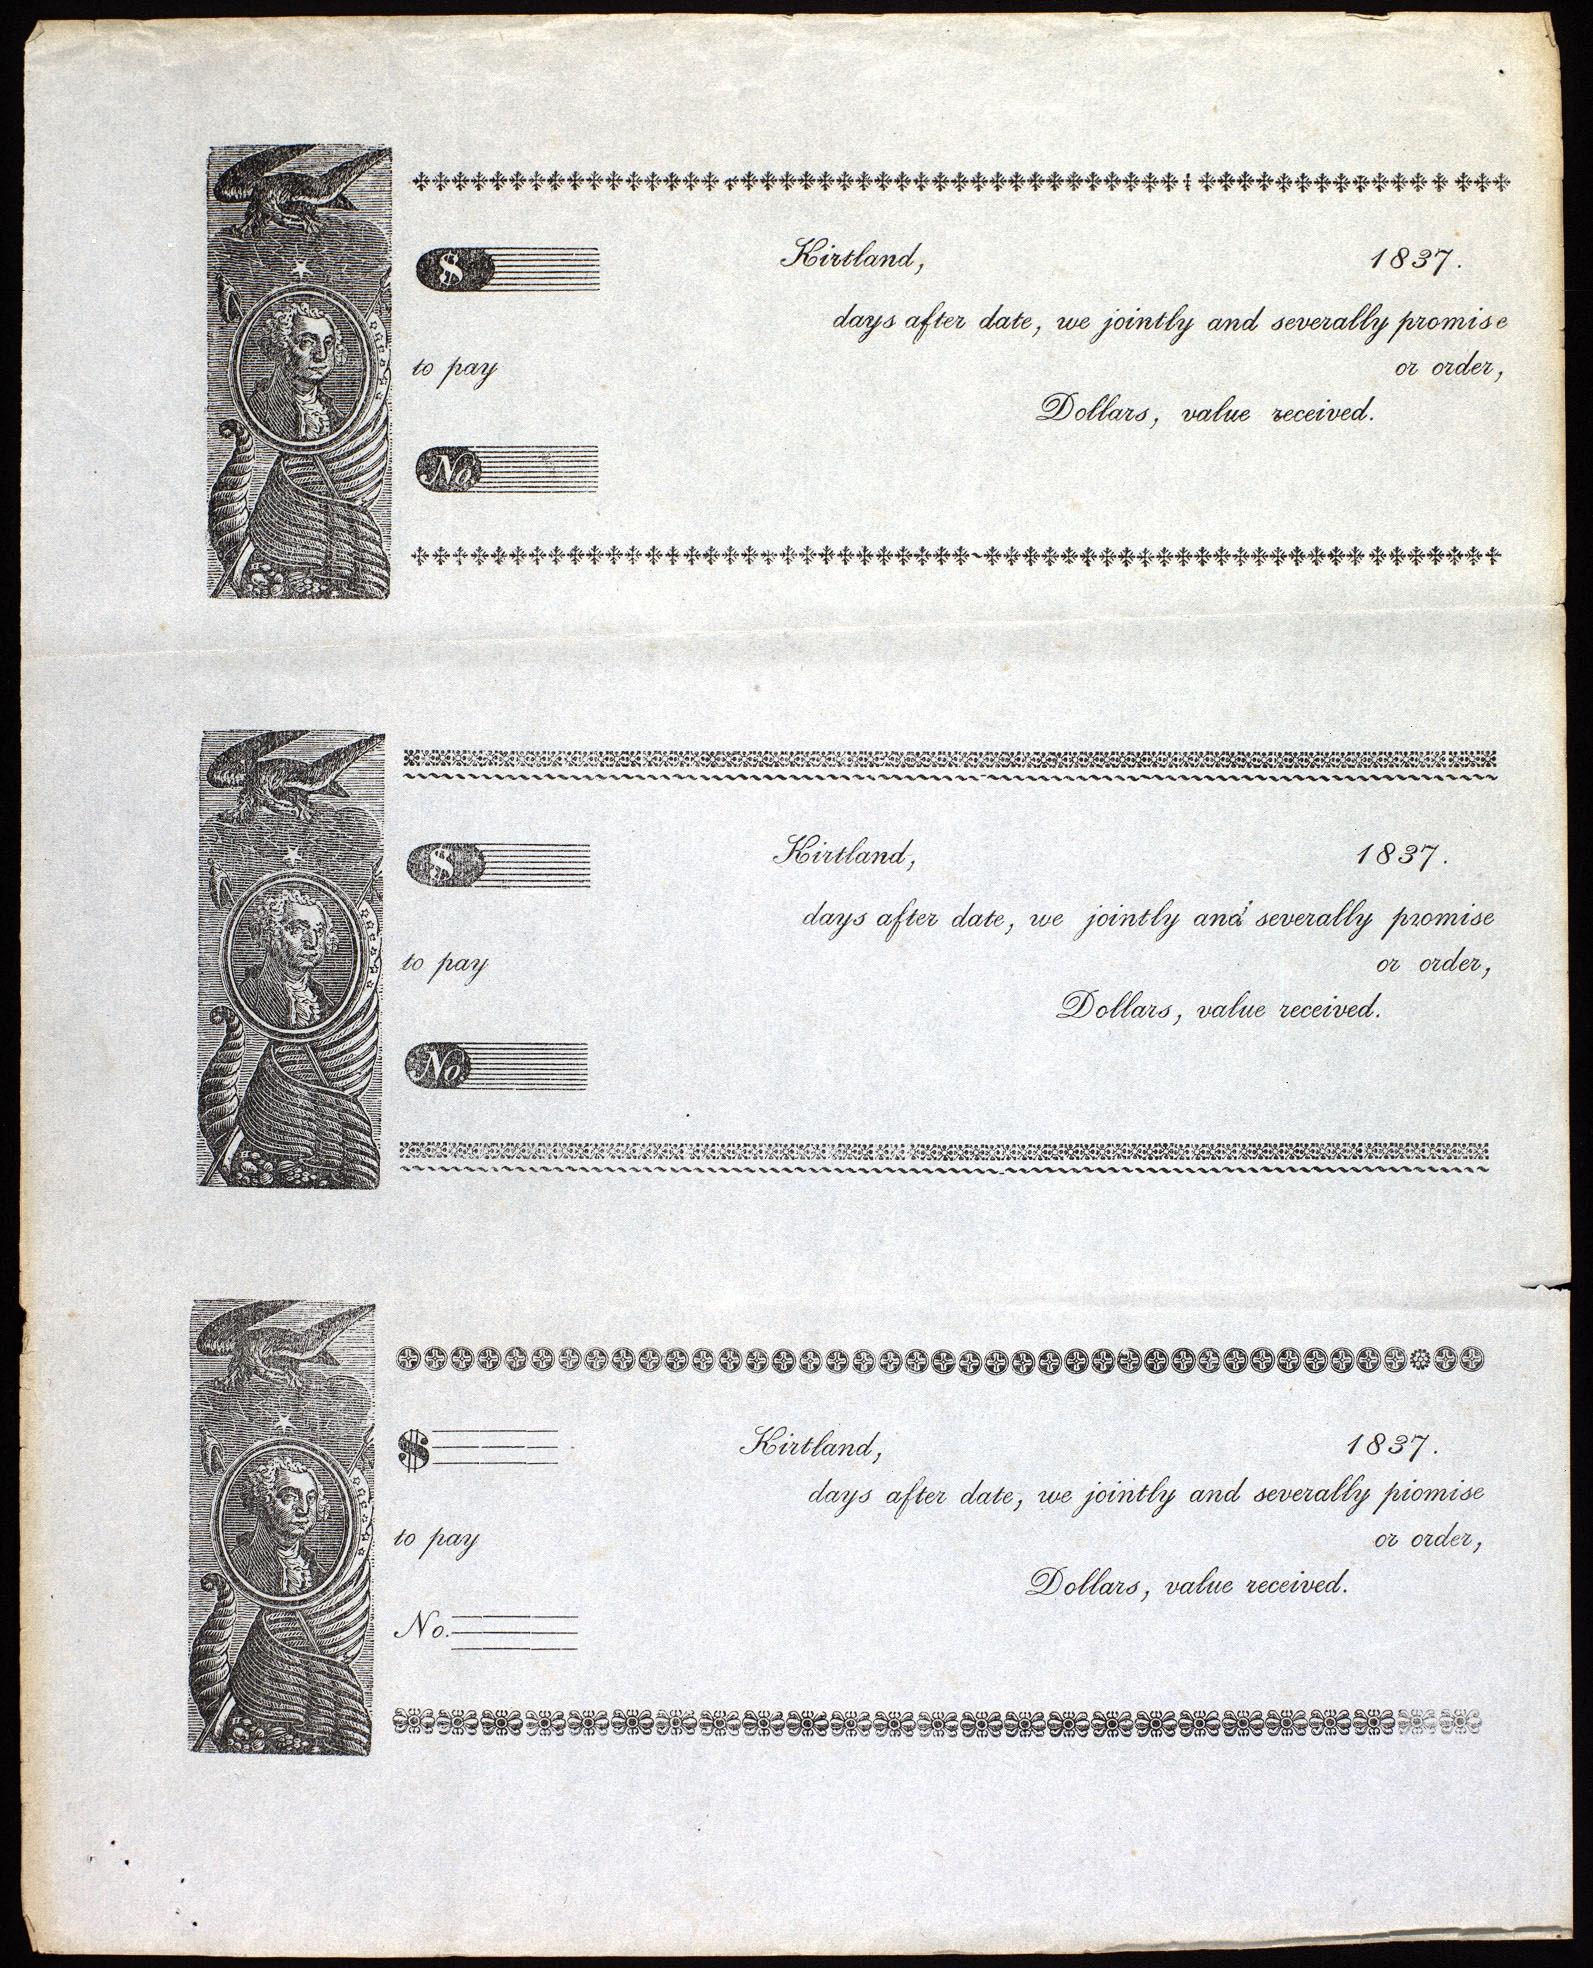 $ Kirtland, 1837.
days after date, we jointly and severally promise
to pay or order,
Dollars, value received.
No.
$ Kirtland, 1837.
days after date, we jointly and severally promise
to pay or order,
Dollars, value received.
No.
$ Kirtland, 1837.
days after date, we jointly and severally piomise
to pay or order,
Dollars, value received.
No.